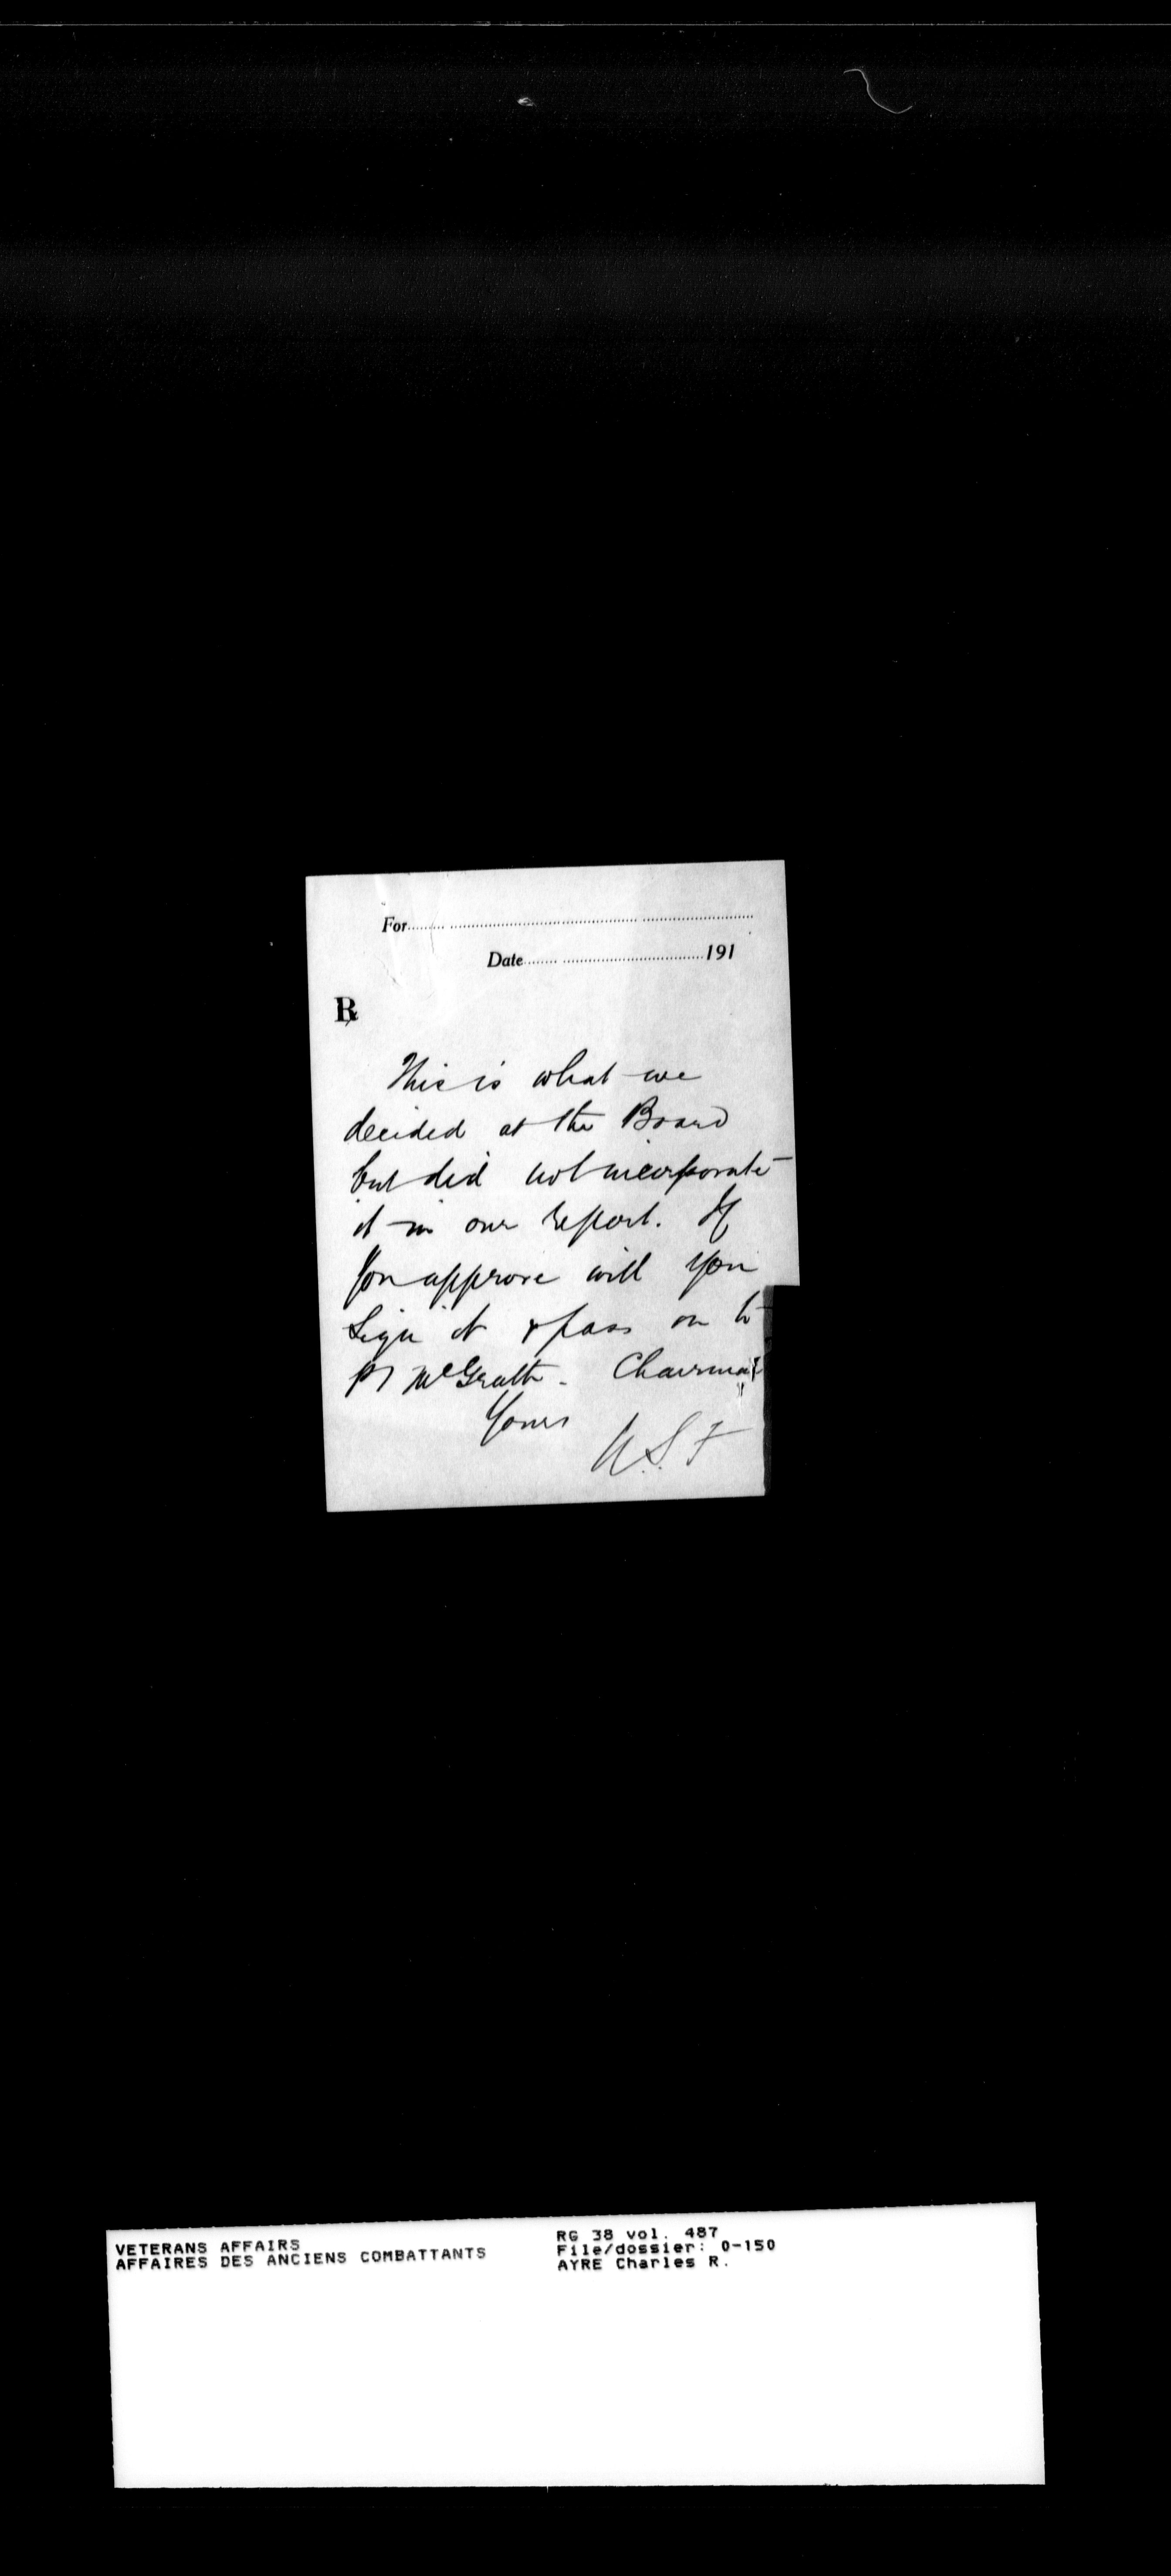 For
Date 191
℞
This is what we
decided at the Board
but did not incorporate
it in our report. If
you approve will you
sign it & pass on to
McGrath - Chairman
Yours
N.S.F
VETERANS AFFAIRS RG 38 vol. 487
AFFAIRES DES ANCIENS COMBATTANTS File/dossier: 0-150
AYRE Charles R.